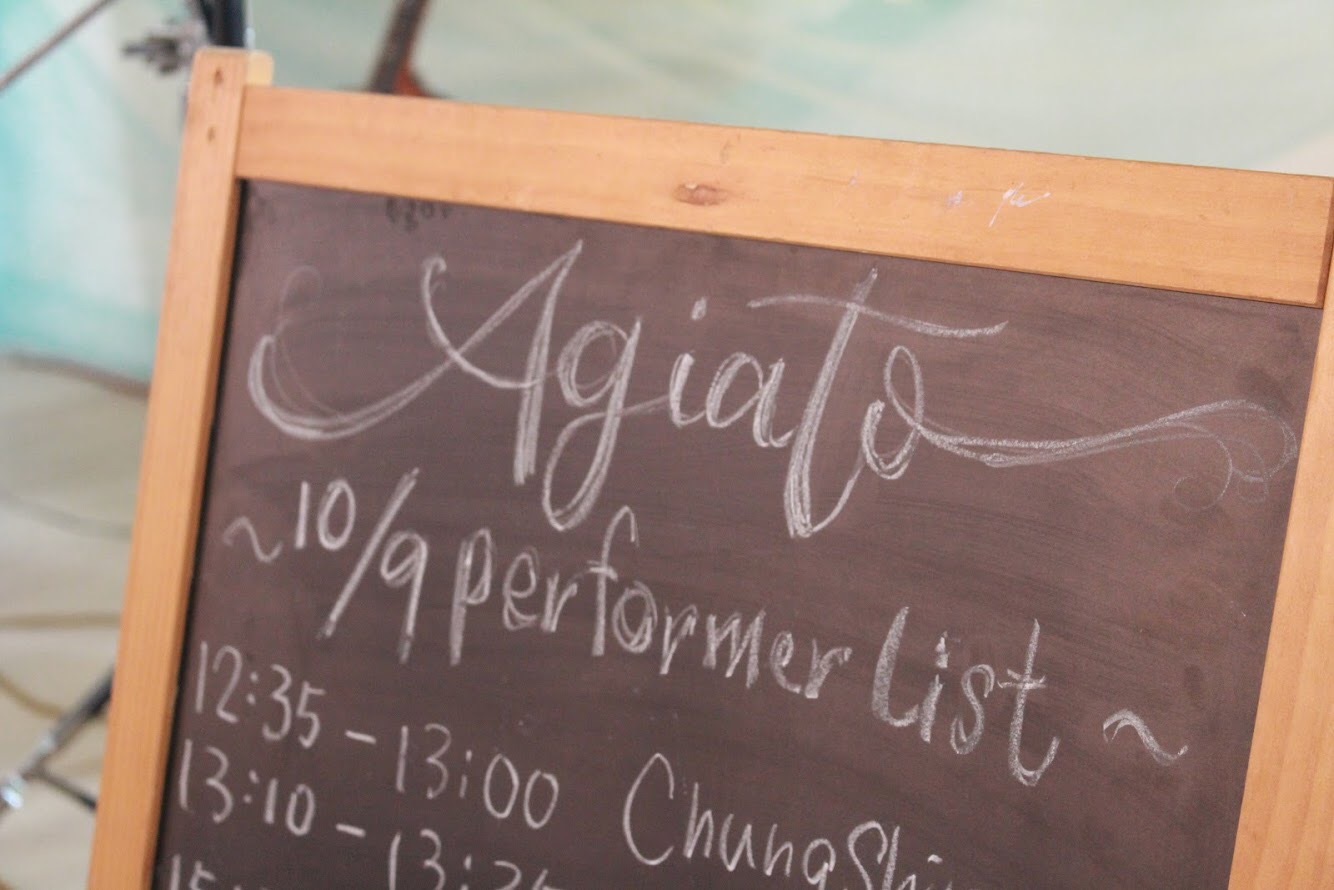 Agiato
~10/9 performer list~
12:35 - 13:00 Chung
13:10 -